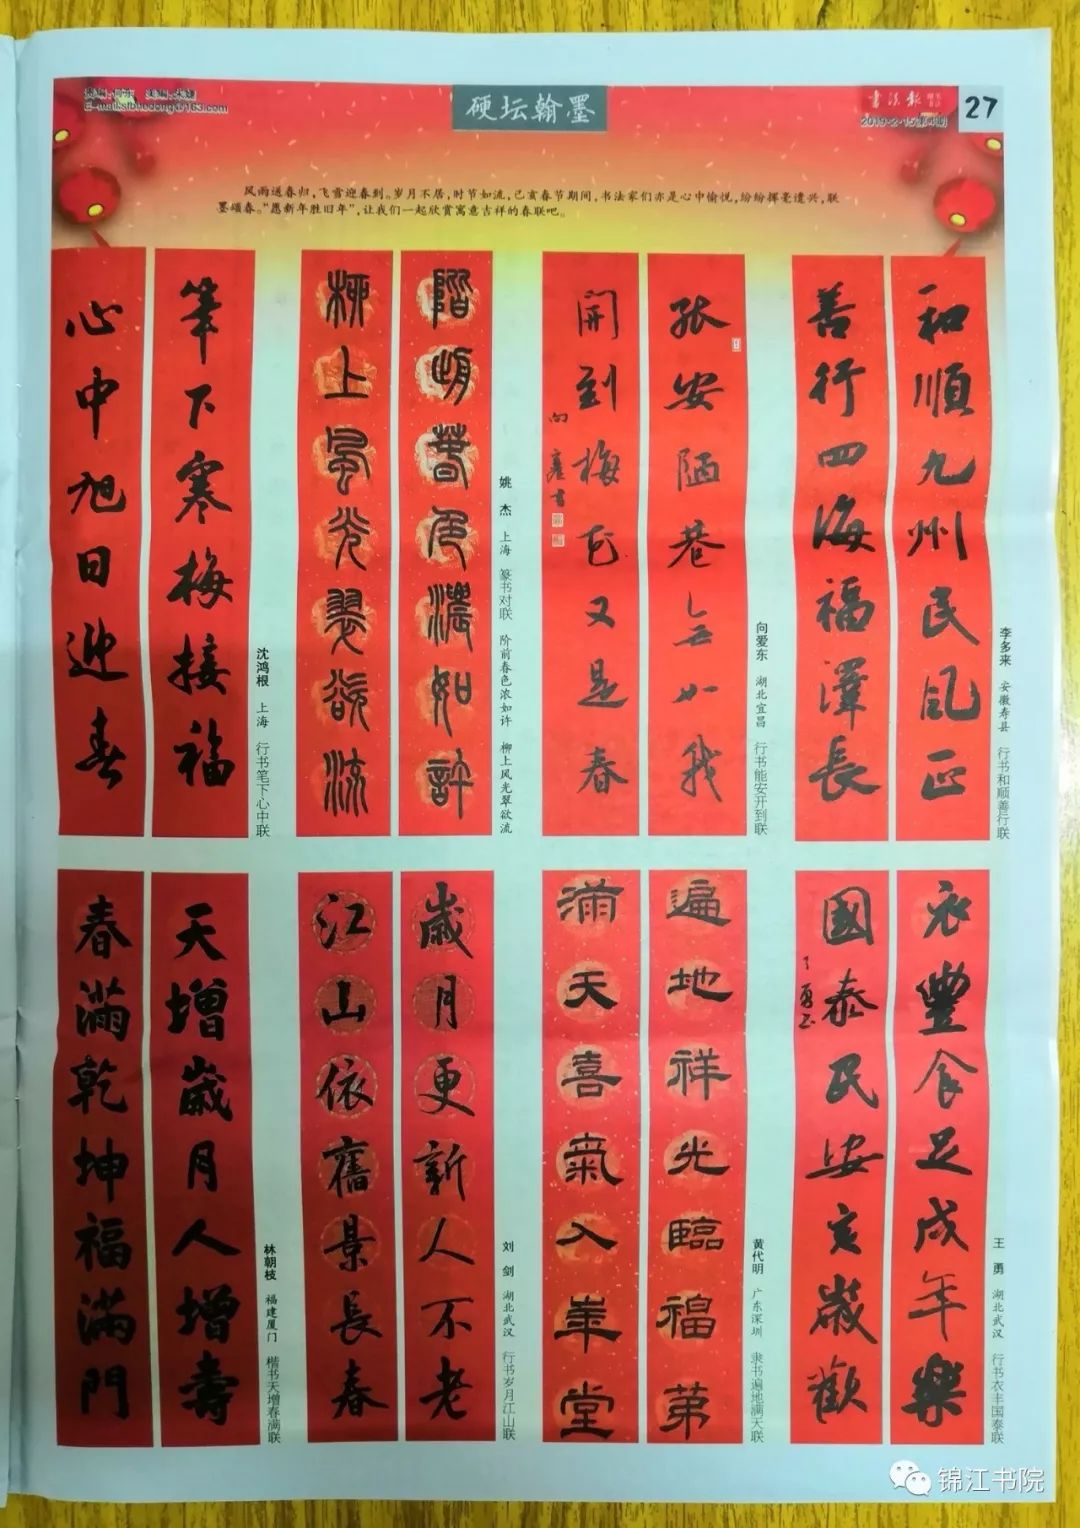 责编:何东 美编:朱婕
E-mail:sfbhedong@163.com
硬坛翰墨
书法报
2019·2·15第4期
27
风雨送春归,飞雪迎春到。岁月不居,时节如流,己亥春节期间,书法家们亦是心中愉悦,纷纷挥毫遣兴,联
墨颂春。“愿新年胜旧年”,让我们一起欣赏寓意吉祥的春联吧。
和順九州民风正
善行四海福澤長
李多来 安徽寿县 行书和顺善行联
能安陋巷无如我
開到梅花又是春
向爱东 湖北宜昌 行书能安开到联
階前春色濃如許
柳上風光翠欲流
姚杰 上海 篆书对联 阶前春色浓如许 柳上风光翠欲流
筆下寒梅接福
心中旭日迎春
沈鸿根 上海 行书笔下心中联
衣豐食足成年樂
國泰民安亥歲歡
王勇 湖北武汉 行书衣丰国泰联
遍地祥光臨福第
滿天喜氣入華堂
黄代明 广东深圳 隶书遍地满天联
歲月更新人不老
江山依舊景長春
刘剑 湖北武汉 行书岁月江山联
天增歲月人增壽
春滿乾坤福滿門
林朝枝 福建厦门 楷书天增春满联
锦江书院